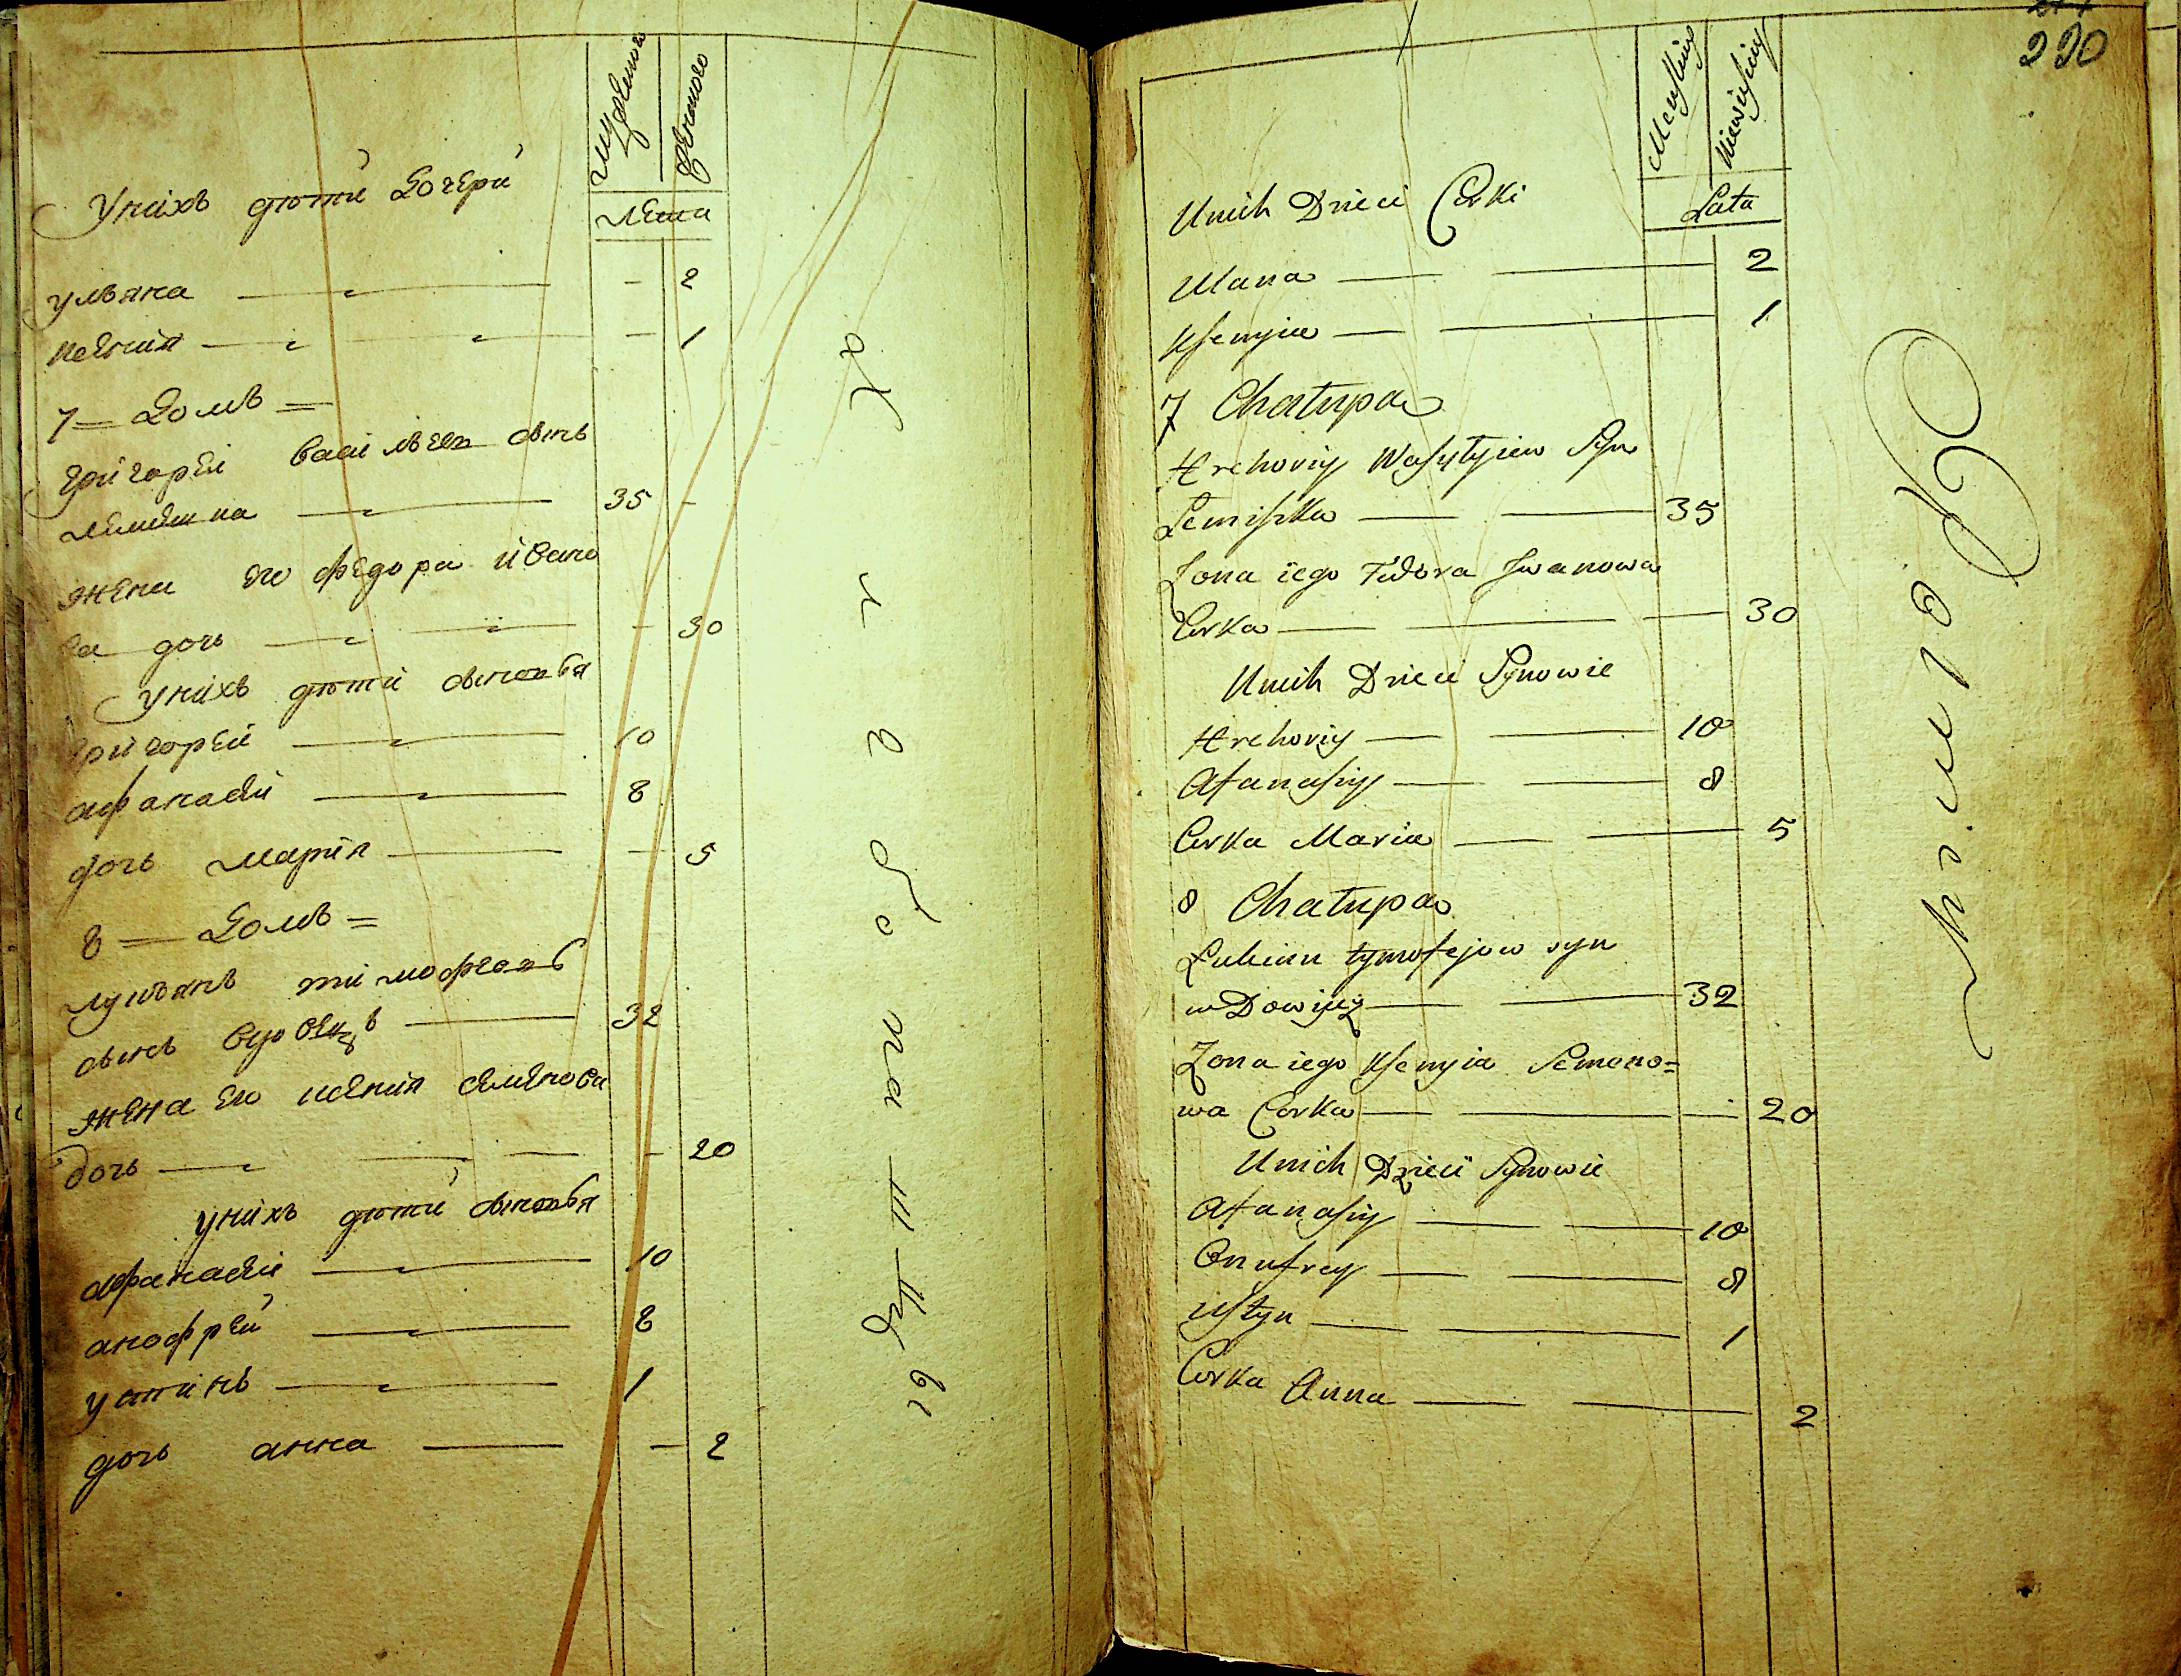 мужеска
женска
лета
У нихъ дѣти дочери
ульяна — — 2
ксения — — 1
7 = домъ =
григорей василъевъ сынъ
лемешка — 35 —
жена его федора ивано
ва дочь — — 30
У нихъ дѣти сыновья
григорей — 10
афанасей — 8
дочь мария — — 5
8 = домъ =
лукьянъ тимофеевъ
сынъ — 32
жена его ксения семенова
дочь — — 20
У нихъ дѣти сыновья
афанасей — 10
анофрей — 8
устинъ — 1
дочь анна — — 2
220
Lata
Unich Dzieci Corki
Ulana — — 2
Ksenyia — — 1
7 Chałupa
Hrehoriy Wasylyiew Syn
Lemiszka — — 35
Zona iego Fidora Iwanowa
Corka — — 30
Unich Dzieci Synowie
Hrehoriy — — 10
Afanasiy — — 8
Corka Maria — — 5
8 Chałupa
Łukian tymofejow syn
— — 32
Zona iego Ksenyia Semeno=
wa Corka — — 20
Unich Dzieci Synowie
Afanasiy — — 10
Onufrey — — 8
Ustyn — — 1
Corka Anna — — 2